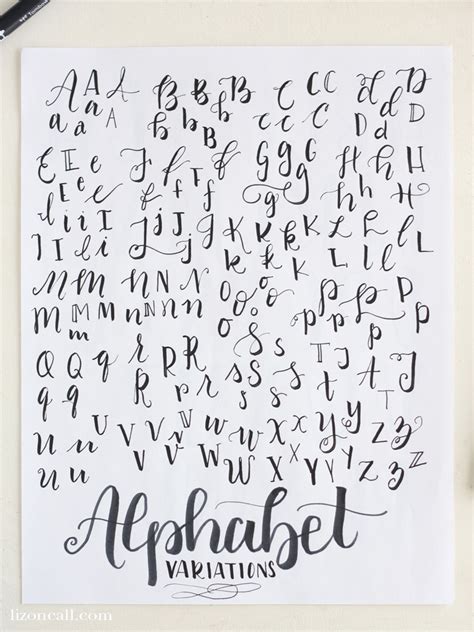 A A A B B B C C C d D
a a A b B b c c C D d D
E E e f f F G G g H h H
E e e f f g g g h h H
I i i I J j J j K K k L l L
I I l i J j j k k K L l l
M m M N n N O o O P p P p
M M m n n n O o o p p p
Q Q q R R R S s S T T J
q q r R r s S s t T
U u U V V V W w W X x X Y y Y Z z Z
u u v V v W W x x Y Y y Z z
Alphabet
VARIATIONS
lizoncall.com